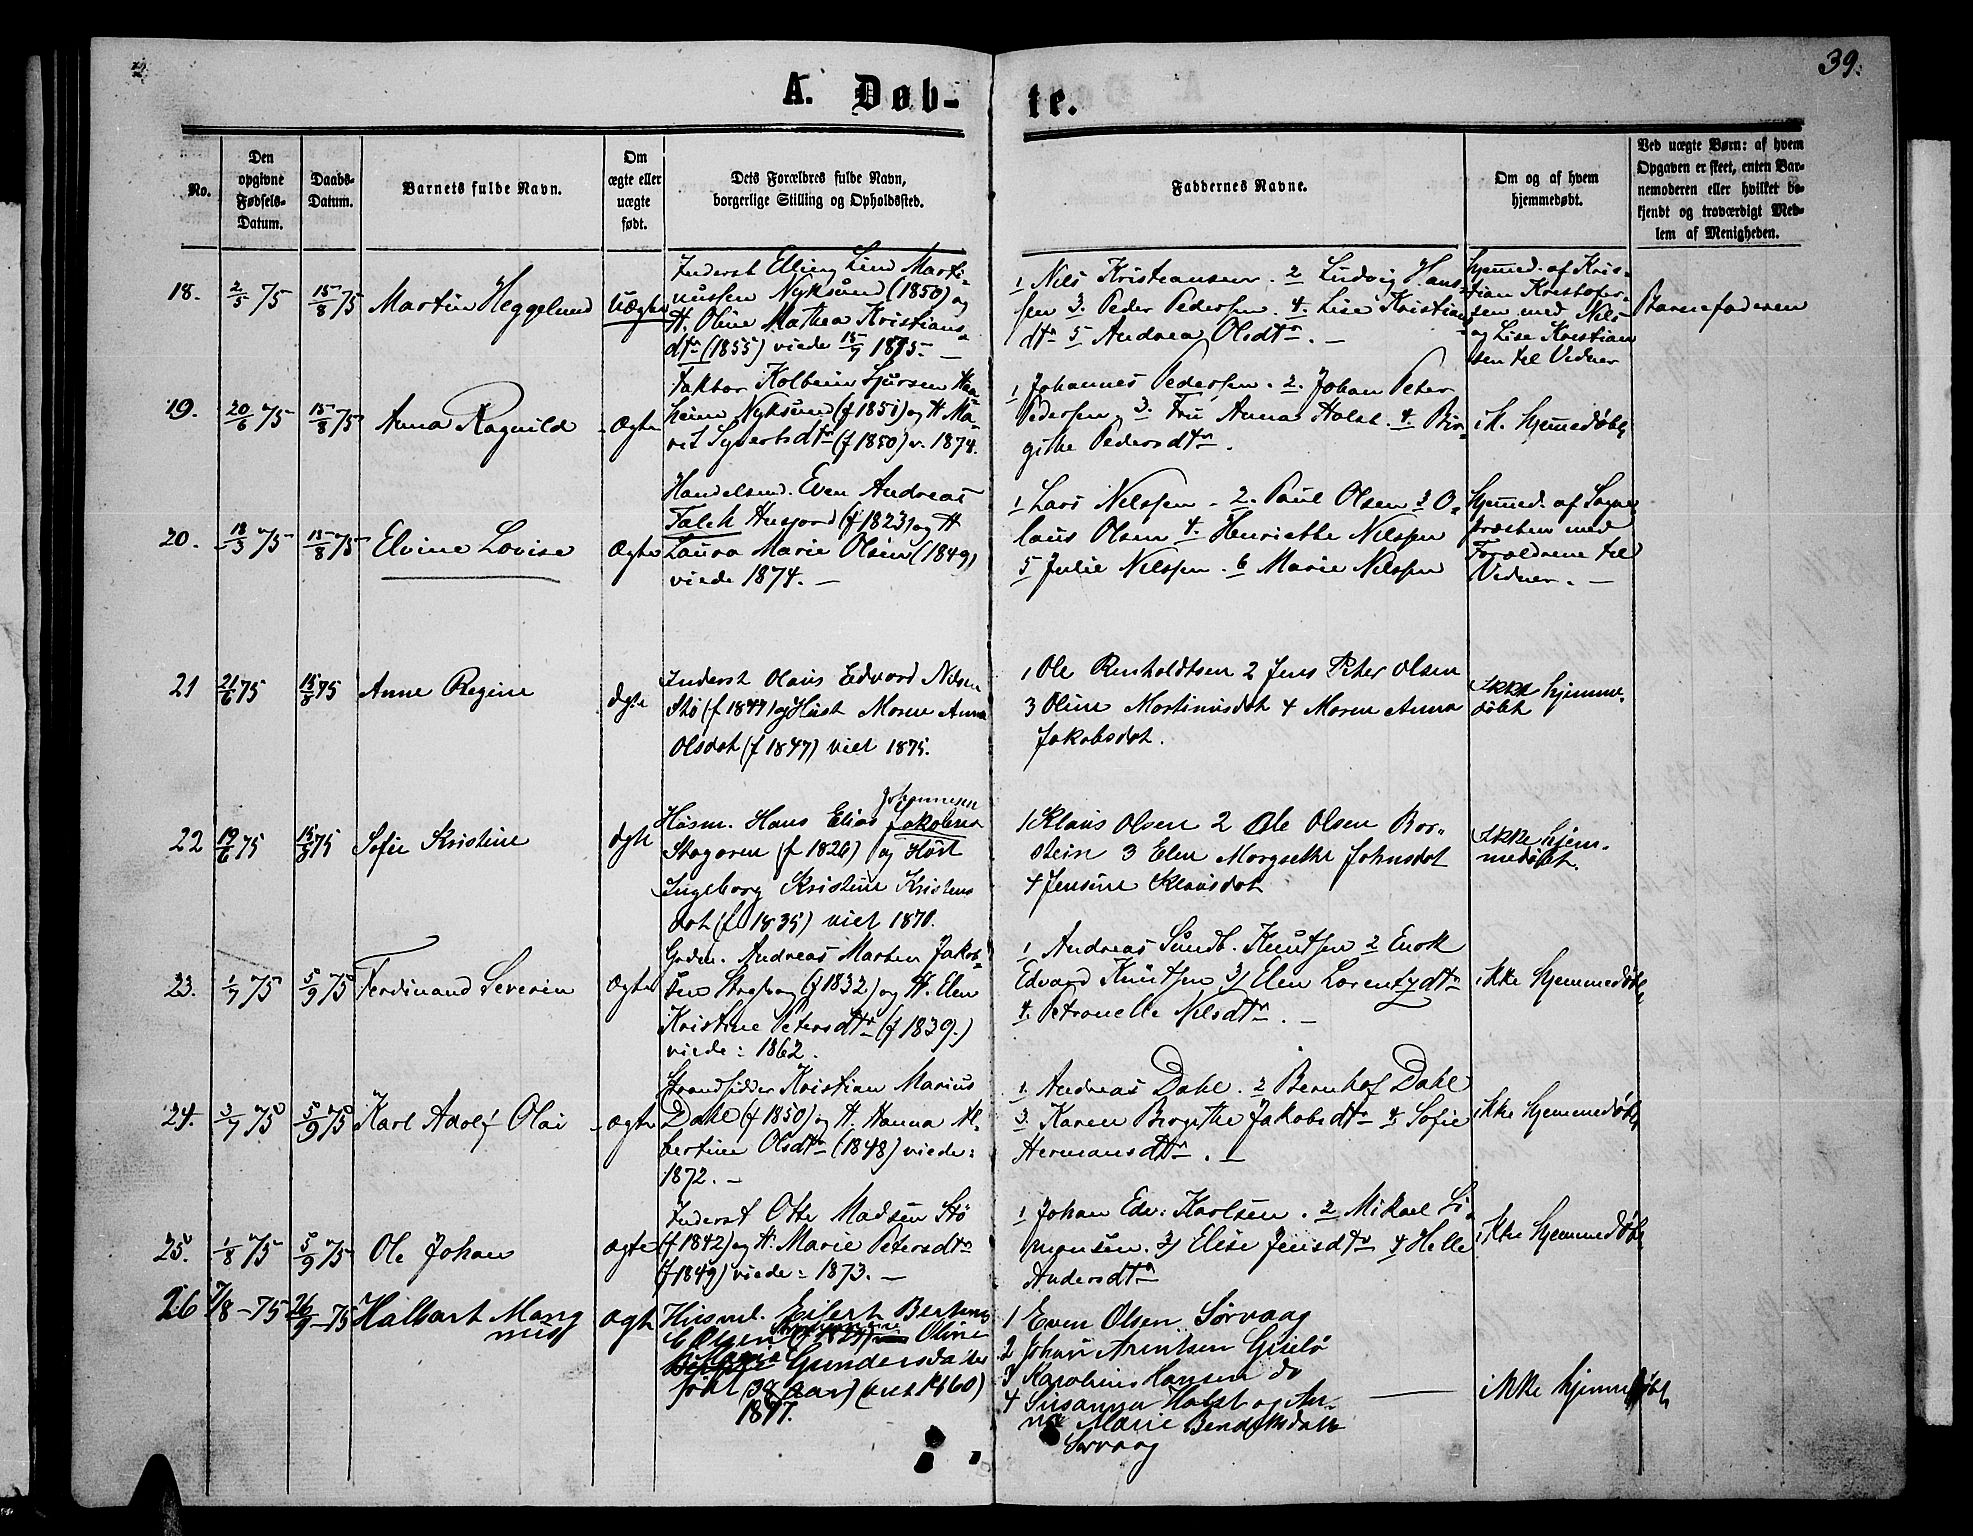 39.
A. Døb-
te.
No.
Den opgivne Fødsels-Datum.
Daabs-Datum.
Barnets fulde Navn.
Om ægte eller uægte født.
Dets Forældres fulde Navn,
borgerlige Stilling og Opholdssted.
Faddernes Navne.
Om og af hvem
hjemmedøbt.
Ved uægte Børn: af hvem
Opgaven er skeet, enten Bar-
nemoderen eller hvilket be-
kjendt og troværdigt Med-
lem af Menigheden.
18. 2/5 75 15/8 75 Martin Heggelund Uægte
Inderst Elling Lind Marti-
nussen Nyksund (1850) og
H. Oline Mathea Kristians-
dtr (1855) viede 15/7 1875. —
1 Nils Kristiansen. 2 Ludvig Hans-
sen 3. Peder Pedersen. 4. Lise Kristian
dtr 5 Andrea Olsdtr. —
hjemmed. af Kris-
tian Kristofer-
sen med Nils
og Lise Kristian
sen til Vidner
Barnefaderen
19. 20/6 75 15/8 75 Anna Ragnild Ægte
Faktor Kolbein Sjursen
heim Nyksund (f 1851) og H Ma-
rit Syvertsdtr (f 1850) v. 1874.
1 Johannes Pedersen. 2. Johan Peter
Pedersen, 3. Fru Anna Holst. 4. Bir-
githe Pedersdtr.
ik. hjemmedøbt
20. 18/3 75 15/8 75 Elvine Lovise Ægte
Handelsmd. Even Andreas
Falch Husjord (f 1823) og H
Laura Marie Olsen (1849)
viede 1874. —
1 Lars Nilssen. 2. Paul Olsen 3 O-
laus Olsen 4. Henriette Nilssen
5 Julie Nilssen. 6 Marie Nilssen
hjemmed. af Sogne
præsten med
Forældrene til
Vidner. —
21 21/6 75 15/8 75 Anne Regine ægte
Inderst Olaus Edvard Nilsen
Stø (f 1847) og Hust Maren Anna
Olsdat (f 1847) viet 1875.
1 Ole Renholdtsen 2 Jens Peter Olsen
3 Oline Martinusdat 4 Maren Anna
Jakobsdat.
Ikke hjemme-
døbt
22 19/6 75 15/8 75 Sofie Kristine ægte
Johannesen
Husm. Hans Elias Jakobsen
Skogøren (f 1826) og Hust
Ingeborg Kristine Kristens
dat (f 1835) viet 1870.
1 Klaus Olsen 2 Ole Olsen Bor-
stein 3 Elen Margrethe Johnsdat
4 Jensine Klausdat
Ikke hjem-
medøbt.
23. 1/7 75 5/9 75 Ferdinand Severin Ægte
Gadm. Andreas Marten Jakob-
sen (f 1832) og H. Elen
Kristine Petersdtr (f 1839.)
viede: 1862.
1 Andreas Sundb. Knutsen 2 Enok
Edvard Knutsen 3/ Elen Lorentzdtr
4. Petronelle Nilsdtr. —
ikke hjemmedøbt
24. 3/7 75 5/9 75 Karl Adolf Olai Ægte
Strandsidder Kristian Marius
Dahl (f 1850) og H. Hanna Al-
bertine Olsdtr (1848) viede:
1872. —
1. Andreas Dahl. 2 Bernhof Dahl
3. Karen Birgithe Jakobsdtr 4 Sofie
Hermansdtr. —
ikke hjemmedøbt
25. 1/8 75 5/9 75 Ole Johan ægte
Inderst Otte Madsen Stø
(f 1842) og H. Marie Petersdtr
(f 1849) viede: 1873. —
1 Johan Edv: Karlsen. 2 Mikael Si-
monsen. 3/ Elise Jensdtr 4 Helle
Andersdtr
ikke hjemmedøbt
26 7/8 - 75 26/9 - 75 Halvart Mang
nus ægte
Husmd. Eilert Berteus
Olsen Oline
Marie Gundersdatter
født (38 aar) (viet 1860)
1877.
1 Even Olsen Sørvaag
2 Johan Arntsen Gislø
3 Karolius Hansen do
4 Susanna Holst og An-
na Marie Bendiksdatr
Sørvaag
ikke hjemmedøbt